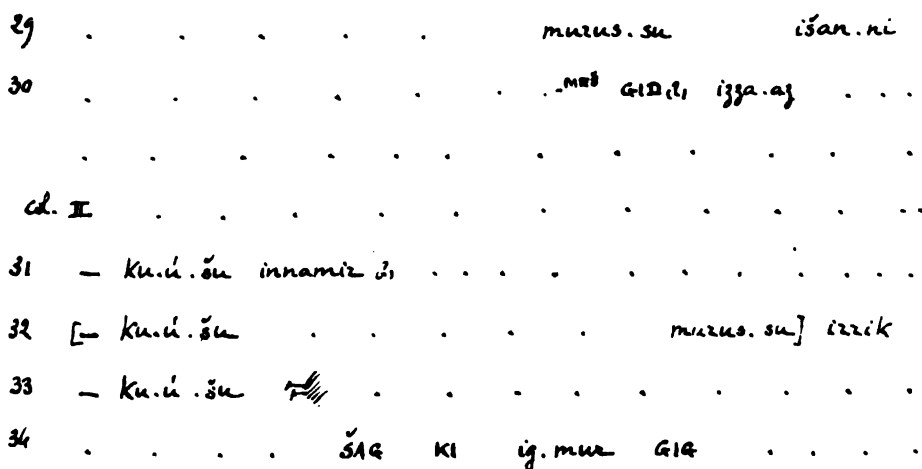 29 . . . . . muruṣ.su išan.ni
30 . . . . . . .MEŠ GID(?) izza.az . . .
. . . . . . . . . . . .
col. II . . . . . . . . . . . .
31 — Ku.ú.šu innamir . . . . . . . . . .
32 [— Ku.ú.šu . . . . . muruṣ.su] izzik
33 — Ku.ú.šu . . . . . . . . .
34 . . . . ŠAG KI ig.mur GIG . . . .